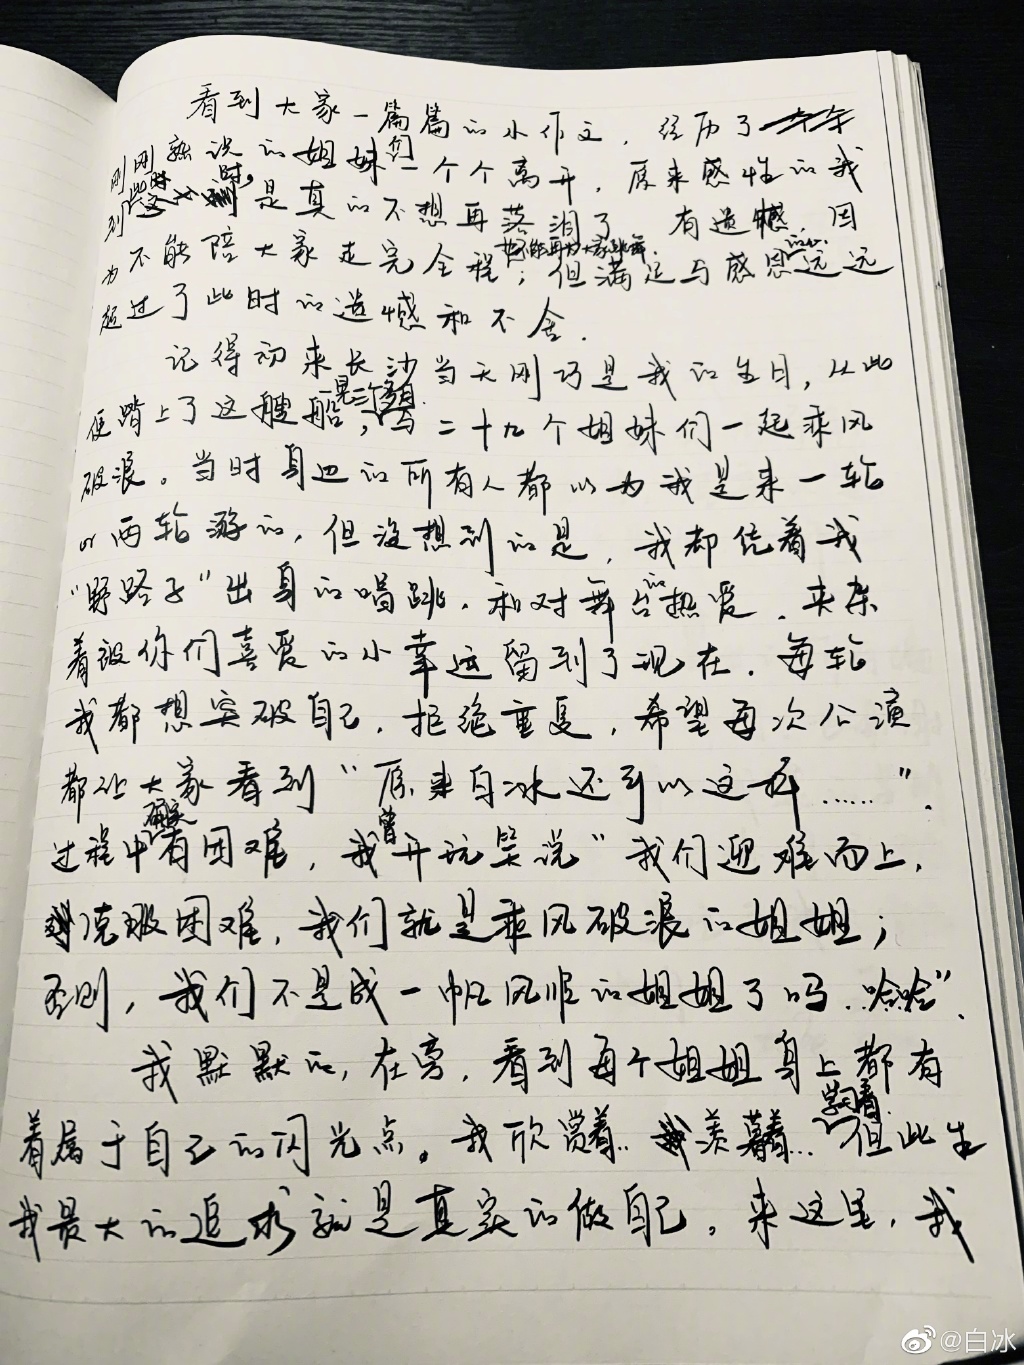 看到大家一篇篇的小作文，经历了
刚刚熟识的姐妹们一个个离开，原来感性的我
到此时此刻时，是真的不想再落泪了 有遗憾，因
为不能陪大家走完全程，不能再为大家跳舞；但满足与感恩的心远远
超过了此时的遗憾和不舍．
记得初来长沙当天刚巧是我的生日，从此
便踏上了这艘船，一晃三个多月．与二十九个姐妹们一起乘风
破浪。当时身边的所有人都以为我是来一轮
or两轮游的，但没想到的是，我都凭着我
“野路子”出身的唱跳．和对舞台的热爱．夹杂
着被你们喜爱的小幸运留到了现在．每轮
我都想突破自己，拒绝重复，希望每次公演
都让大家看到“原来白冰还可以这样……”．
过程中确实有困难，我曾开玩笑说“我们迎难而上，
克服困难，我们就是乘风破浪的姐姐；
否则，我们不是成一帆风顺的姐姐了吗．哈哈”．
我默默的，在旁，看到每个姐姐身上都有
着属于自己的闪光点。我欣赏着．．羡慕着…学习着．但此生
我最大的追求就是真实的做自己。来这里，我
@白冰